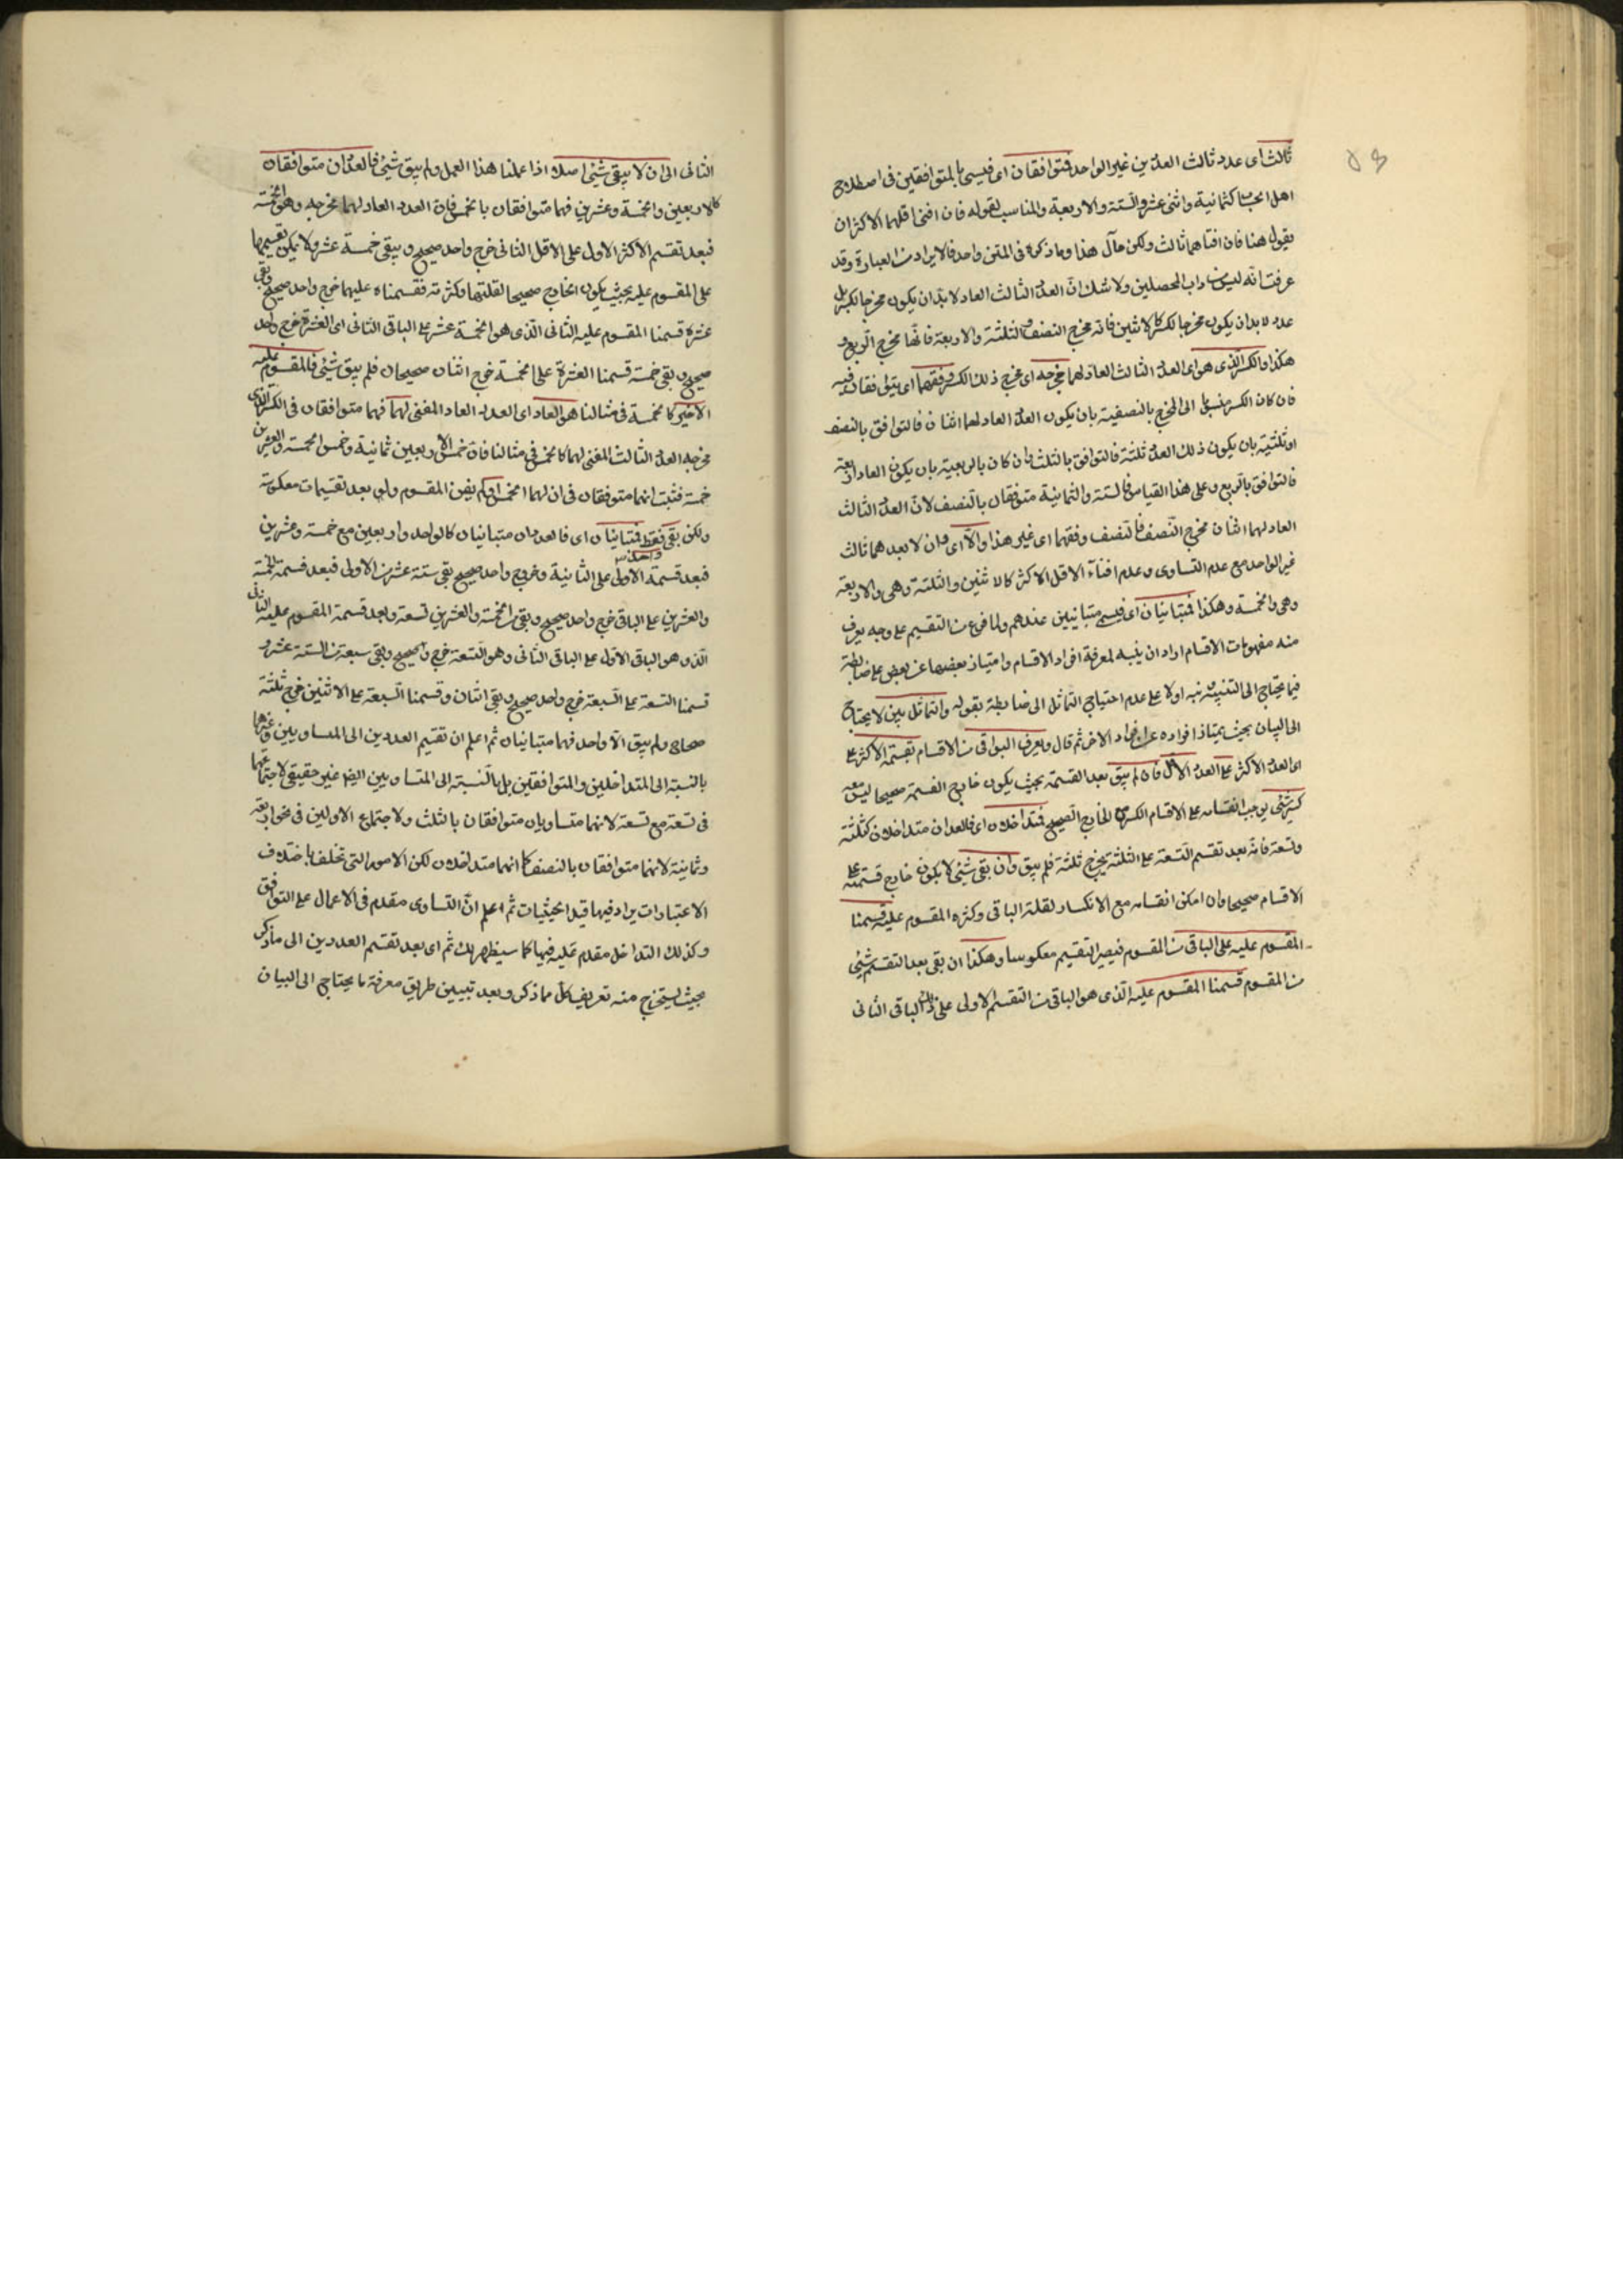 ٥٣
ثالث اى عدد ثالث العددين غير الواحد فمتوافقان اى فيسمى بالمتوافقين فى اصطلاح
اهل الحساب كثمانية واثنى عشر والستة والاربعة والمناسب لقوله فان افنى اقلهما الاكثر ان
يقول هنا فان افناهما ثالث ولكن مآل هذا وما ذكره فى المتن واحد فالايراد من العبارة وقد
عرفت انه ليس من داب المحصلين ولا شك ان العدد الثالث العاد لا بد ان يكون مخرجا لكسر بل
عدد لا بد ان يكون مخرجا لكسر كالاثنين فانه مخرج النصف والثلثة والاربعة فانها مخرج الربع و
هكذا والكسر الذى هو اى العدد الثالث العاد لهما مخرجه اى مخرج ذلك الكسر وفقهما اى يتوافقان فيه
فان كان الكسر منسوبا الى المخرج بالنصفية بان يكون العدد العاد لهما اثنان فالتوافق بالنصف
او ثلثية بان يكون ذلك العدد ثلثة فالتوافق بالثلث وان كان بالربعية بان يكون العاد اربعة
فالتوافق بالربع وعلى هذا القياس فالستة والثمانية متوافقان بالنصف لان العدد الثالث
العاد لهما اثنان مخرج النصف فالنصف وفقهما اى غير هذا والا اى وان لا يعد هما ثالث
غير الواحد مع عدم التساوى وعدم افناء الاقل الاكثر كالاثنين والثلثة وهى والاربعة
وهى والخمسة وهكذا فمتباينان اى فيسمى متباينين عندهم ولما فرغ من التقسيم على وجه يعرف
منه مفهومات الاقسام اراد ان ينبه لمعرفة افراد الاقسام وامتياز بعضها عن بعض على ضابطة
فيما يحتاج الى التنبيه نبه اولا على عدم احتياج التماثل الى ضابطة بقوله والتماثل بين لا يحتاج
الى البيان بحيث يمتاز افراده عن افراد الاخر ثم قال ويعرف البواقى من الاقسام بقسمة الاكثر على
اى العدد الاكثر على العدد الاقل فان لم يبق بعد القسمة بحيث يكون خارج القسمة صحيحا ليس معه
كسر شئ يوجب انقسامه على الاقسام الكسر مع الخارج الصحيح فمتداخلان اى فالعددان متداخلان كثلثة
وتسعة فانه بعد تقسيم التسعة على الثلثة يخرج ثلثة فلم يبق وان بقى شئ لا يكون خارج قسمته على
الاقسام صحيحا وان امكن انقسامه مع الانكسار لقلة الباقى وكثرة المقسوم عليه قسمنا
المقسوم عليه على الباقى من المقسوم فيصير التقسيم معكوسا وهكذا ان بقى بعد التقسيم شئ
من المقسوم قسمنا المقسوم عليه الذى هو الباقى من التقسيم الاولى على ذلك الباقى الثانى
الثانى الى ان لا يبقى شئ اصلا اذا عملنا هذا العمل ولم يبق شئ فالعددان متوافقان
كالاربعين والخمسة وعشرين فهما متوافقان بالخمس فان العدد العاد لهما مخرجه وهو الخمسة
فبعد تقسيم الاكثر الاول على الاقل الثانى خرج واحد صحيح ويبقى خمسة عشر ولا يمكن تقسيمها
على المقسوم عليه بحيث يكون الخارج صحيحا لقلتها وكثرته فقسمناه عليها خرج واحد صحيح وبقى
عشرة قسمنا المقسوم عليه الثانى الذى هو الخمسة عشر على الباقى الثانى اى العشرة خرج واحد
صحيح وبقى خمسة قسمنا العشرة على الخمسة خرج اثنان صحيحان فلم يبق شئ فالمقسوم عليه
الاخير كالخمسة فى مثالنا هو العاد اى العدد العاد المفنى لهما فهما متوافقان فى الكسر الذى
مخرجه العدد الثالث المفنى لهما كالخمس فى مثالنا فان خمس الاربعين ثمانية وخمس الخمسة والعشرين
خمسة فثبت انهما متوفقان فى ان لهما الخمس وان لم يفن المقسوم ولو بعد تقسيمات معكوسة
ولكن بقى واحد فقط فمتباينان اى فالعددان متباينان كالواحد واربعين مع خمسة وعشرين
فبعد قسمة الاولى على الثانية وخروج واحد صحيح بقى ستة عشر من الاولى فبعد قسمة الخمسة
والعشرين على الباقى خرج واحد صحيح وبقى من الخمسة والعشرين تسعة وبعد قسمة المقسوم عليه الثانى
الذى هو الباقى الاول على الباقى الثانى وهو التسعة خرج واحد صحيح وبقى سبعة من الستة عشر و
قسمنا التسعة على السبعة خرج واحد صحيح وبقى اثنان وقسمنا السبعة على الاثنين خرج ثلثة
صحاح ولم يبق الا واحد فهما متباينان ثم اعلم ان تقسيم العددين الى المساويين وغيرهما
بالنسبة الى المتداخلين والمتوافقين بل بالنسبة الى المتساويين ايضا غير حقيقى لاجتماعهما
فى تسعة مع تسعة لانهما متساويان متوافقان بالثلث ولاجتماع الاولين فى نحو اربعة
وثمانية لانهما متوافقان بالنصف كما انهما متداخلان لكن الامور التى تختلف باختلاف
الاعتبارات يراد فيها قيد الحيثيات ثم اعلم ان التساوى مقدم فى الاعمال على التوافق
وكذلك التداخل مقدم عليه فيها كما سيظهر لك ثم اى بعد تقسيم العددين الى ما ذكر
بحيث يستخرج منه تعريف كل مما ذكر وبعد تبيين طريق معرفة ما يحتاج الى البيان